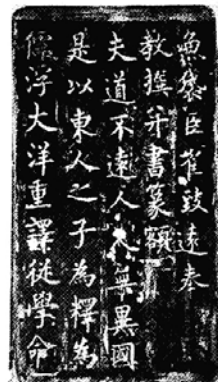 魚袋臣崔致遠奉
教撰并書篆額
夫道不遠人人無異國
是以東人之子為釋為
儒浮大洋重譯從學命